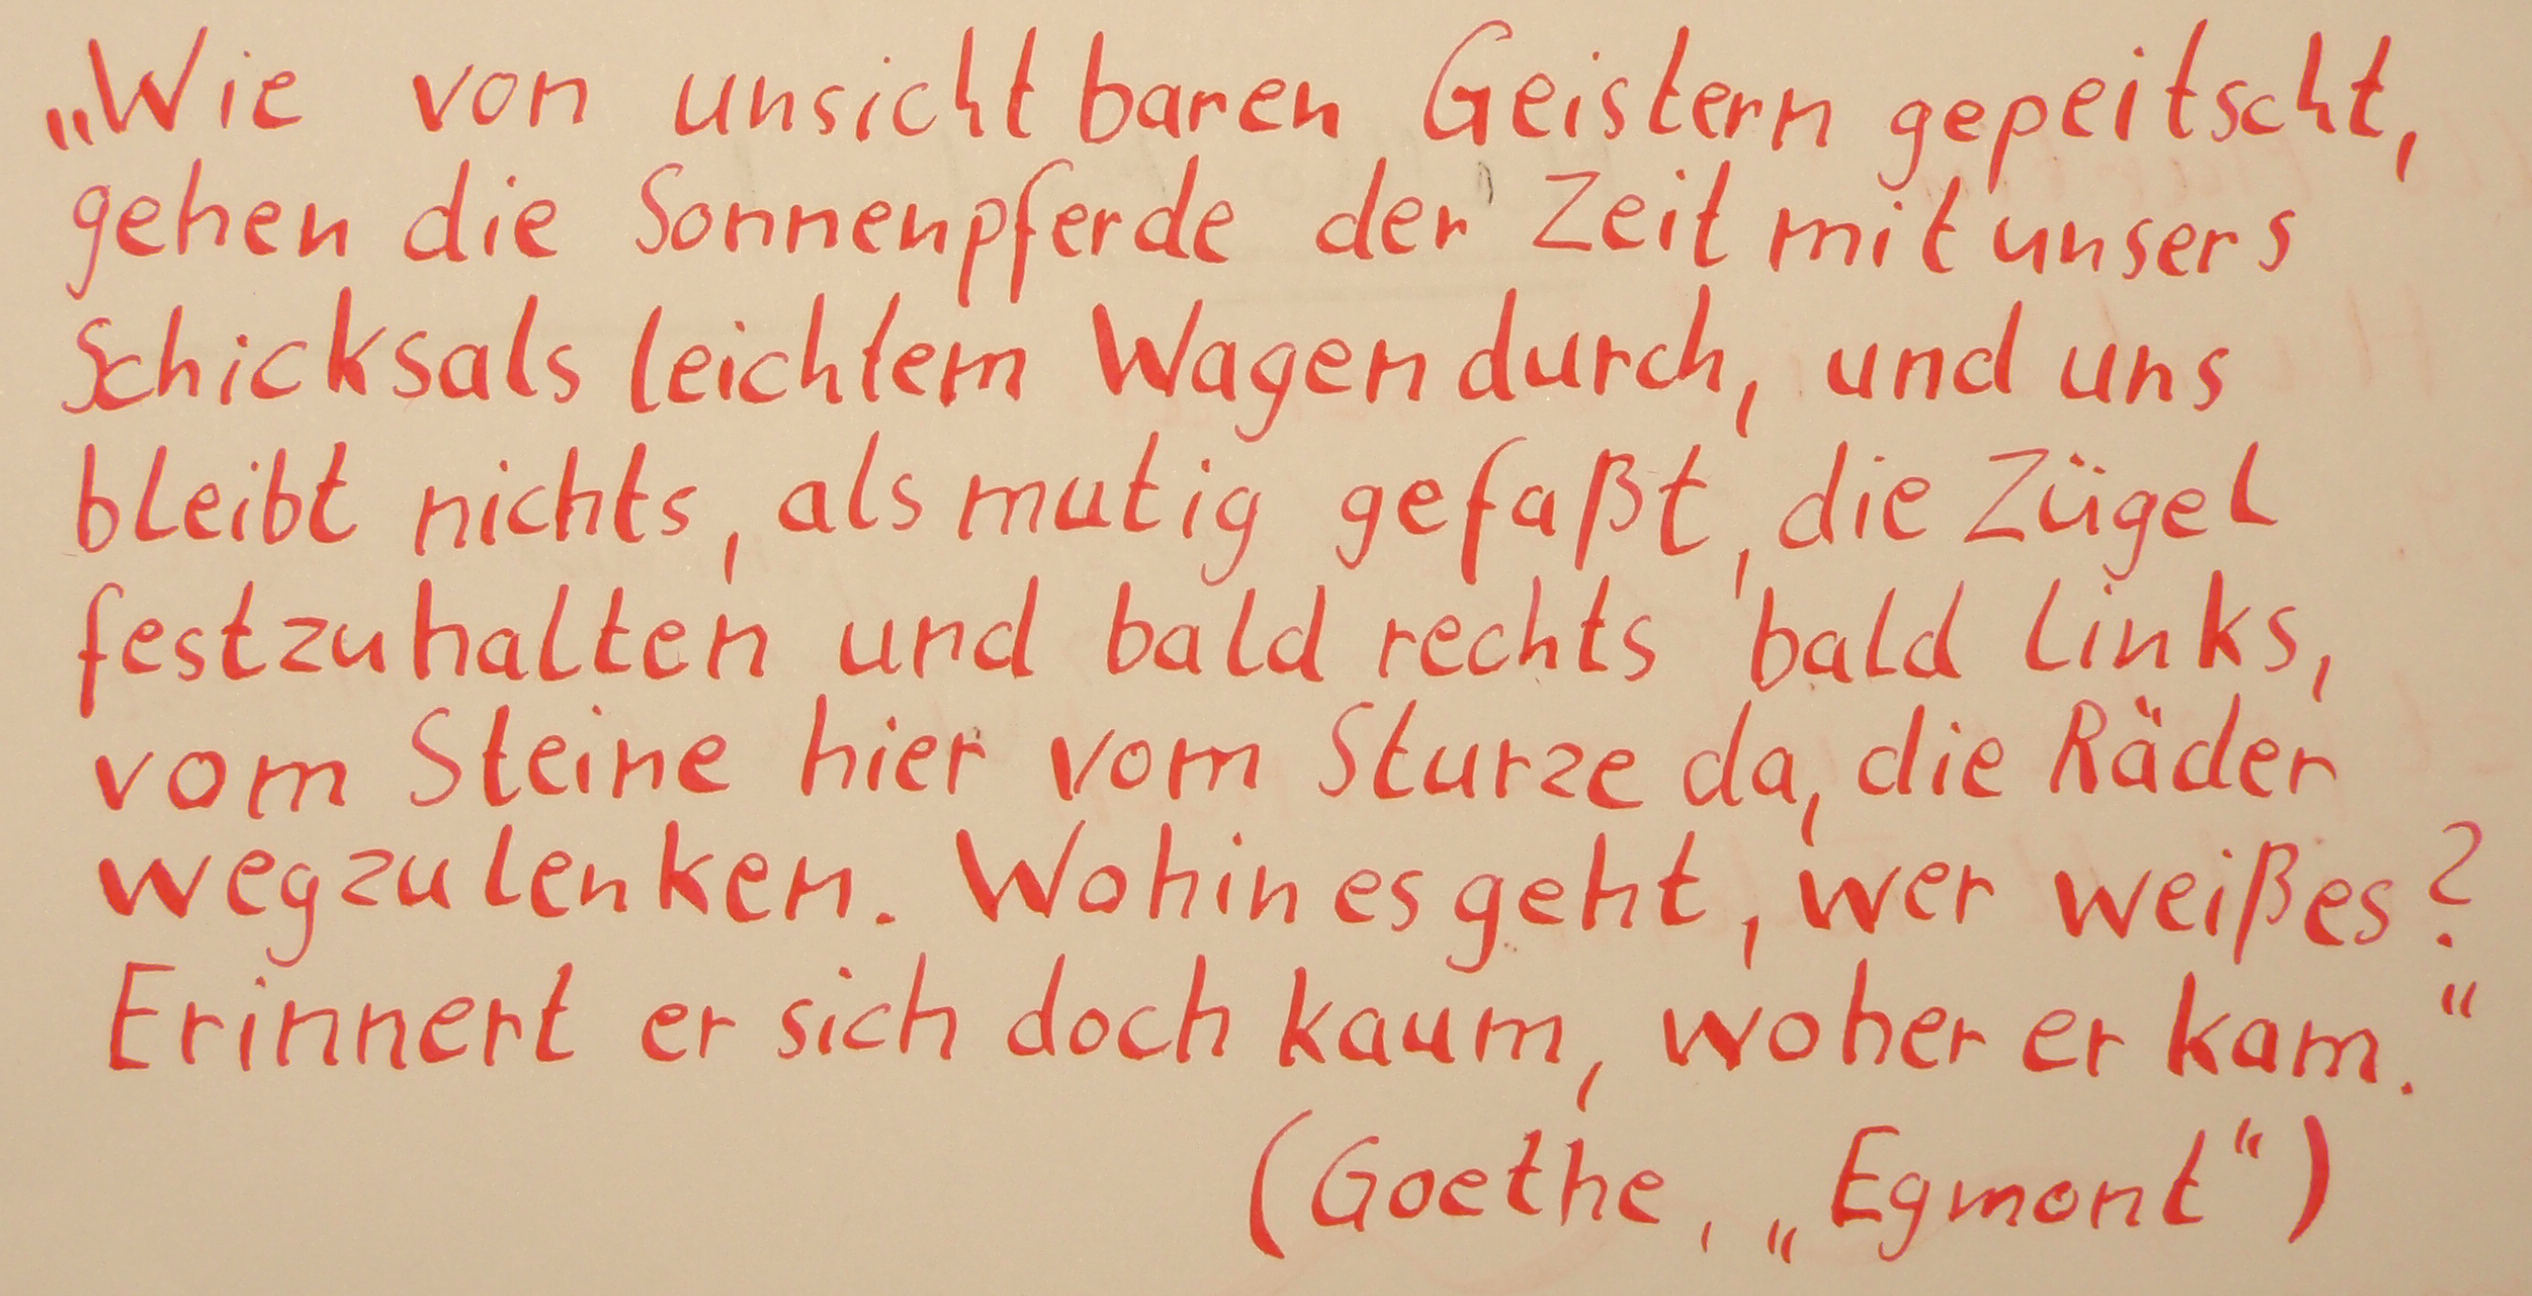 „Wie von unsichtbaren Geistern gepeitscht,
gehen die Sonnenpferde der Zeit mit unsers
Schicksals leichtem Wagen durch, und uns
bleibt nichts, als mutig gefaßt, die Zügel
festzuhalten und bald rechts bald links,
vom Steine hier vom Sturze da, die Räder
wegzulenken. Wohin es geht, wer weiß es?
Erinnert er sich doch kaum, woher er kam.“
(Goethe, „Egmont“)